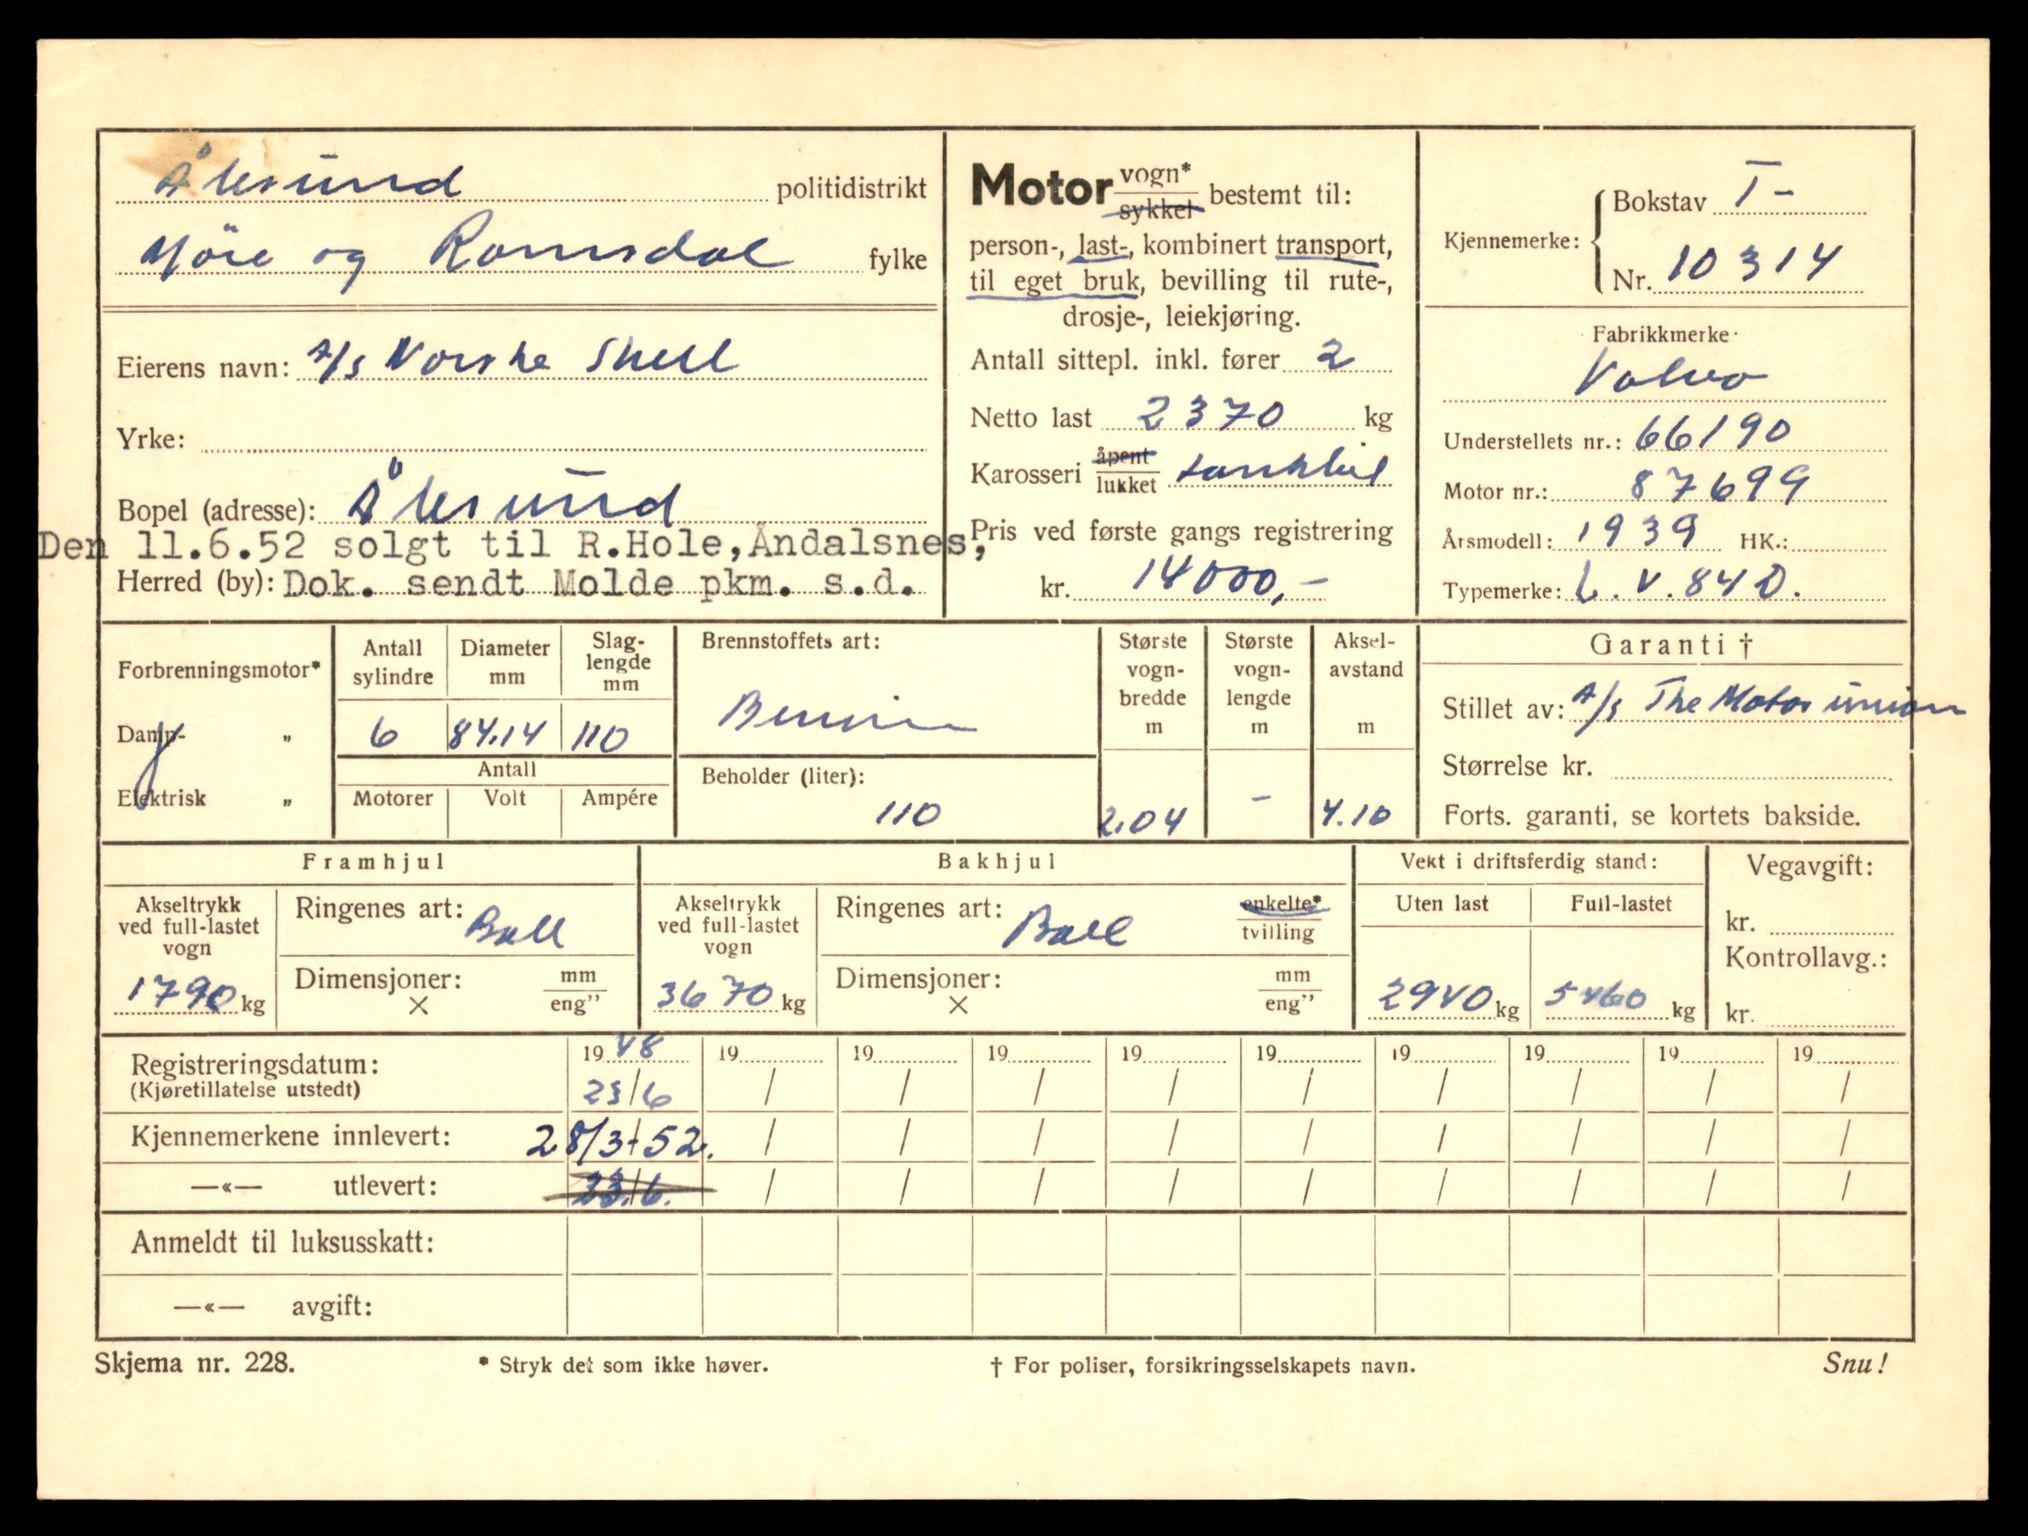 Ålesund politidistrikt
Möre og Romsdal fylke
Eierens navn: A/S Norske Shell
Yrke:
Bopel (adresse): Ålesund
Den 11.6.52 solgt til R.Hole,Åndalsnes,
Herred (by): Dok. sendt Molde pkm. s.d.
Motor vogn* sykkel bestemt til:
person-, last-, kombinert transport,
til eget bruk, bevilling til rute-,
drosje-, leiekjøring.
Antall sittepl. inkl. fører 2
Netto last 2370 kg
Karosseri åpent lukket tankbil
Pris ved første gangs registrering
kr. 14000,-
Kjennemerke: Bokstav T-
Nr. 10314
Fabrikkmerke
Volvo
Understellets nr.: 66190
Motor nr.: 87699
Årsmodell: 1939 HK.:
Typemerke: L.V.84D.
Forbrenningsmotor*
Damp- „
Elektrisk „
Antall sylindre
6
Diameter mm
84.14
Slag-lengde mm
110
Antall
Motorer Volt Ampére
Brennstoffets art:
Bensin
Beholder (liter):
110
Største vogn-bredde m
2.04
Største vogn-lengde m
-
Aksel-avstand m
4.10
Garanti †
Stillet av: A/S The Motor union
Størrelse kr.
Forts. garanti, se kortets bakside.
Framhjul
Akseltrykk ved full-lastet vogn
1790 kg
Ringenes art: Ball
Dimensjoner: mm
× eng”
Bakhjul
Akseltrykk ved full-lastet vogn
3670 kg
Ringenes art: Ball enkelte* tvilling
Dimensjoner: mm
× eng”
Vekt i driftsferdig stand:
Uten last Full-lastet
2940 kg 5460 kg
Vegavgift:
kr.
Kontrollavg.:
kr.
Registreringsdatum: 1948 19 19 19 19 19 19 19 19 19
(Kjøretillatelse utstedt) 23/6 / / / / / / / / /
Kjennemerkene innlevert: 28/3-52. / / / / / / / / /
—«— utlevert: 23/6. / / / / / / / / /
Anmeldt til luksusskatt:
—«— avgift:
Skjema nr. 228. * Stryk det som ikke høver. † For poliser, forsikringsselskapets navn. Snu!